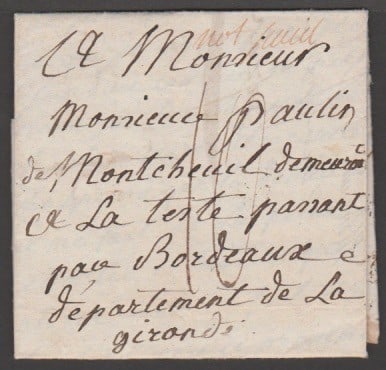 A Monsieur
Monsieur Paulin
de Montcheuil demeurā
a La teste passant
par Bordeaux
département de La
gironde
10